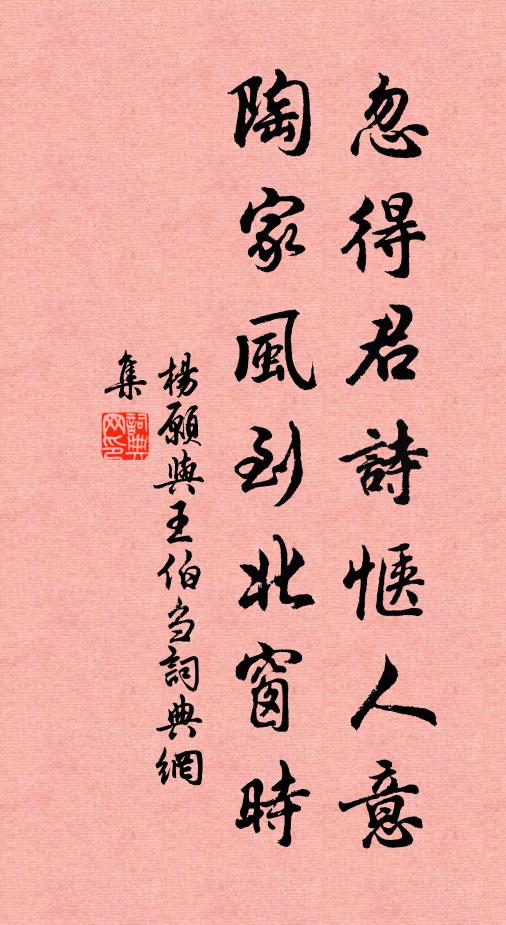 忽得君詩愜人意
陶家風到北窗時
楊願與王伯芻詞典網
集
詞典网印